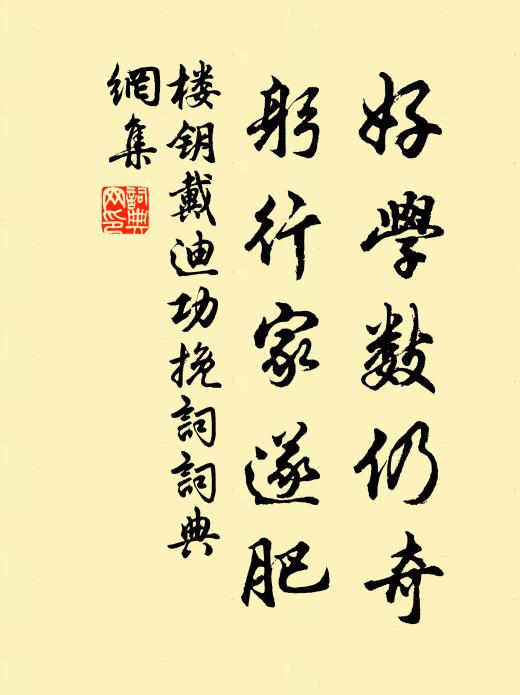 好學数仍奇
躬行家遂肥
楼钥戴迪功挽詞詞典
網集
詞典
网印